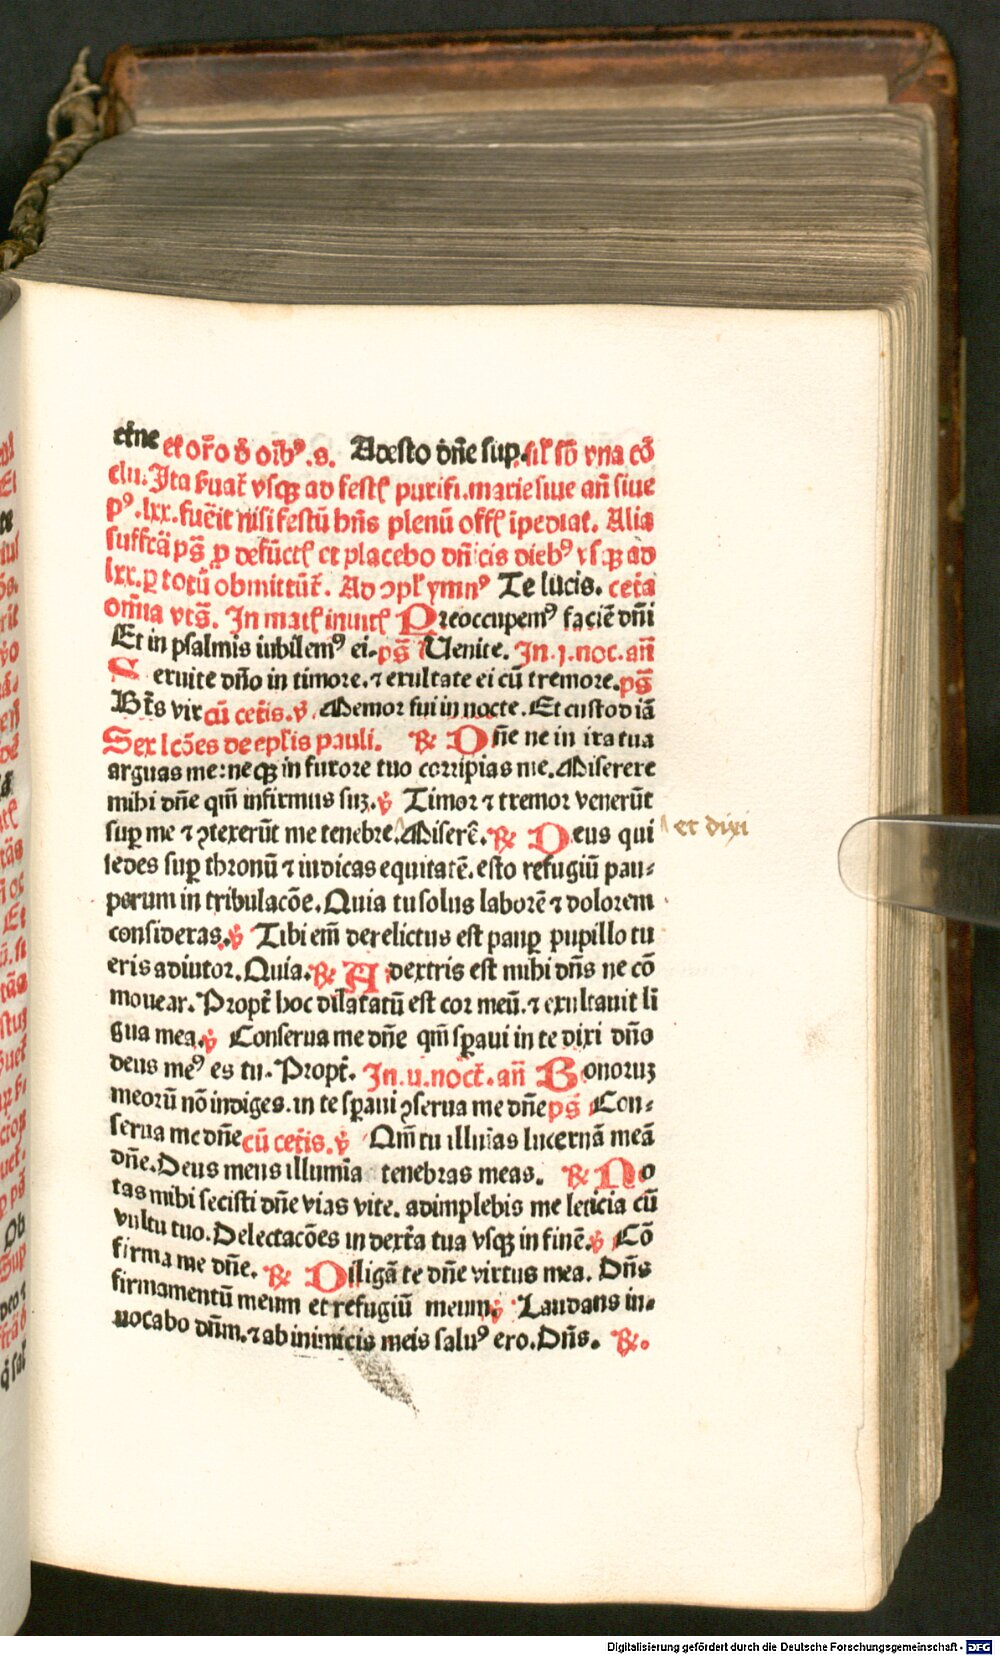 et̃ne et oro̅ d̓ oi̅bꝰ.s. Adesto dn̄e sup. sil̕ sb̄ vna cō
clu. Ita ẜuat̃ vsqꝫ ad festū purifi.marie siue an̄ siue
pꝰ.lxx.fuẽit nisi festū hn̄s plenū offm̄ īpediat. Alia
suffrā pꝭ ꝑ defūctꝭ et placebo dn̄icis diebꝰ vsqꝫ ad
lxx.ꝑ totū obmittūt̃. Ad ↄpl̕ ymnꝰ Te lucis. cet̃a
omīa vts̄. In mat̃ inuit̃ Preoccupemꝰ faciē dn̄i
Et in psalmis iubilemꝰ ei. ps̄ Uenite. In.j.noc.an̄
Seruite dn̄o in timore.⁊ exultate ei cū tremore.ps̄
Bt̃s vir cū cet̃is.v̕. Memor fui in nocte.Et custodiā
Sex lcōes de epl̕is pauli. ℟ Dn̄e ne in ira tua
arguas me:neqꝫ in furore tuo corripias me.Miserere
mihi dn̄e qm̄ infirmus suꝫ.v̕ Timor ⁊ tremor venerūt
suꝑ me ⁊ ↄtexerūt me tenebre.Miserē.℟ Deus qui
et dixi
sedes suꝑ thronū ⁊ iudicas equitatē.esto refugiū pau⸗
perum in tribulacōe.Quia tu solus laborē ⁊ dolorem
consideras.v̕ Tibi em̄ derelictus est pauꝑ pupillo tu
eris adiutor.Quia.℟ A dextris est mihi dn̄s ne cō
mouear.Propt̃ hoc dilatatū est cor meū.⁊ exultauit li
gua mea.v̕ Conserua me dn̄e qm̄ sꝑaui in te dixi dn̄o
deus meꝰ es tu.Propt̃. In.ij.noct̃.an̄ Bonoruꝫ
meorū nō indiges.in te sꝑaui ↄserua me dn̄e ps̄ Con⸗
serua me dn̄e cū cet̃is.v̕ Qm̄ tu illuīas lucernā meā
dn̄e.Deus meus illumīa tenebras meas. ℟ No
tas mihi fecisti dn̄e vias vite.adimplebis me leticia cū
vultu tuo.Delectacōes in dext̃a tua vsqꝫ in finē.v̕ Cō
firma me dn̄e. ℟ Diligā te dn̄e virtus mea. Dn̄s
firmamentū meum et refugiū meum.v̕ Laudans in⸗
uocabo dn̄m.⁊ ab inimicis meis saluꝰ ero.Dn̄s. ℟.
Digitalisierung gefördert durch die Deutsche Forschungsgemeinschaft - DFG